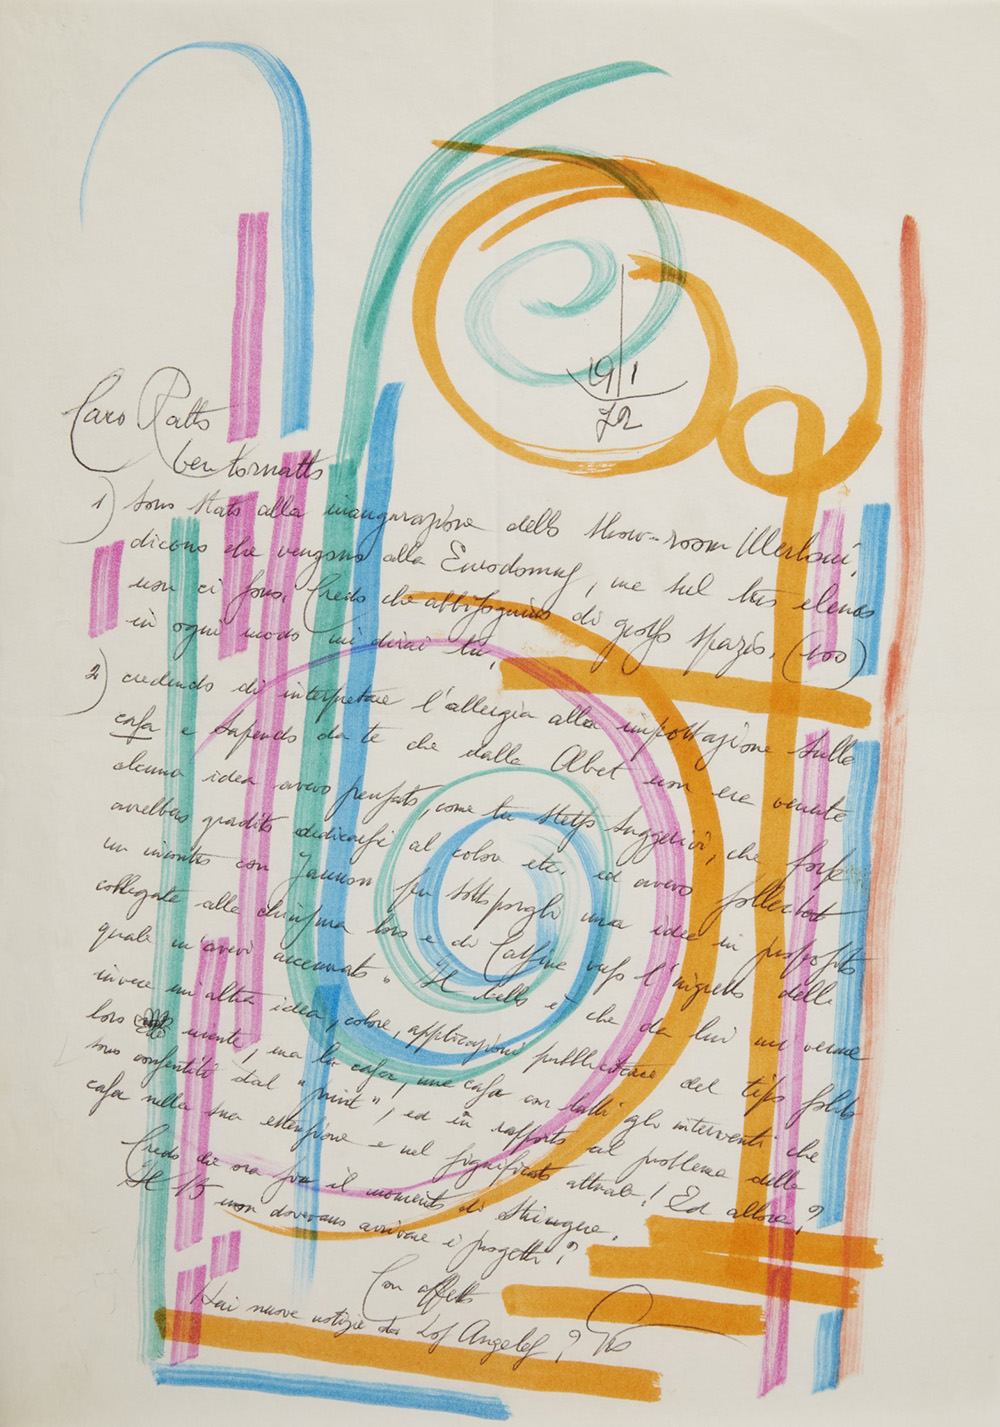 19/1
72
Caro Ratto
bentornato
1) sono stato alla inaugurazione dello show-room Merloni,
dicono che vengono alla Eurodomus, ma sul tuo elenco
non ci sono. Credo che abbisognino di grosso spazio. (100)
in ogni modo mi dirai tu.
2) credendo di interpretare l'allergia alla impostazione sulla
casa e sapendo da te che dalla Abet non era venuta
alcuna idea avevo pensato, come tu stesso suggerivi, che forse
avrebbero gradito dedicarsi al colore etc. ed avevo sollecitato
un incontro con per sottoporgli una idea in proposito
collegata alla loro e di l'ingresso della
quale m'avevi accennato. Il bello è che da lui mi venne
invece un'altra idea, colore, applicazioni pubblicitarie del tipo solito
loro niente, ma la casa, una casa con tutti gli interventi che
sono consentiti dal "print", ed in rapporto al problema della
casa nella sua estensione e nel significato attuale! Ed allora?
Credo che ora sia il momento di stringere.
Il 15 non dovevano arrivare i progetti?
Con affetto
Hai nuove notizie da Los Angeles?